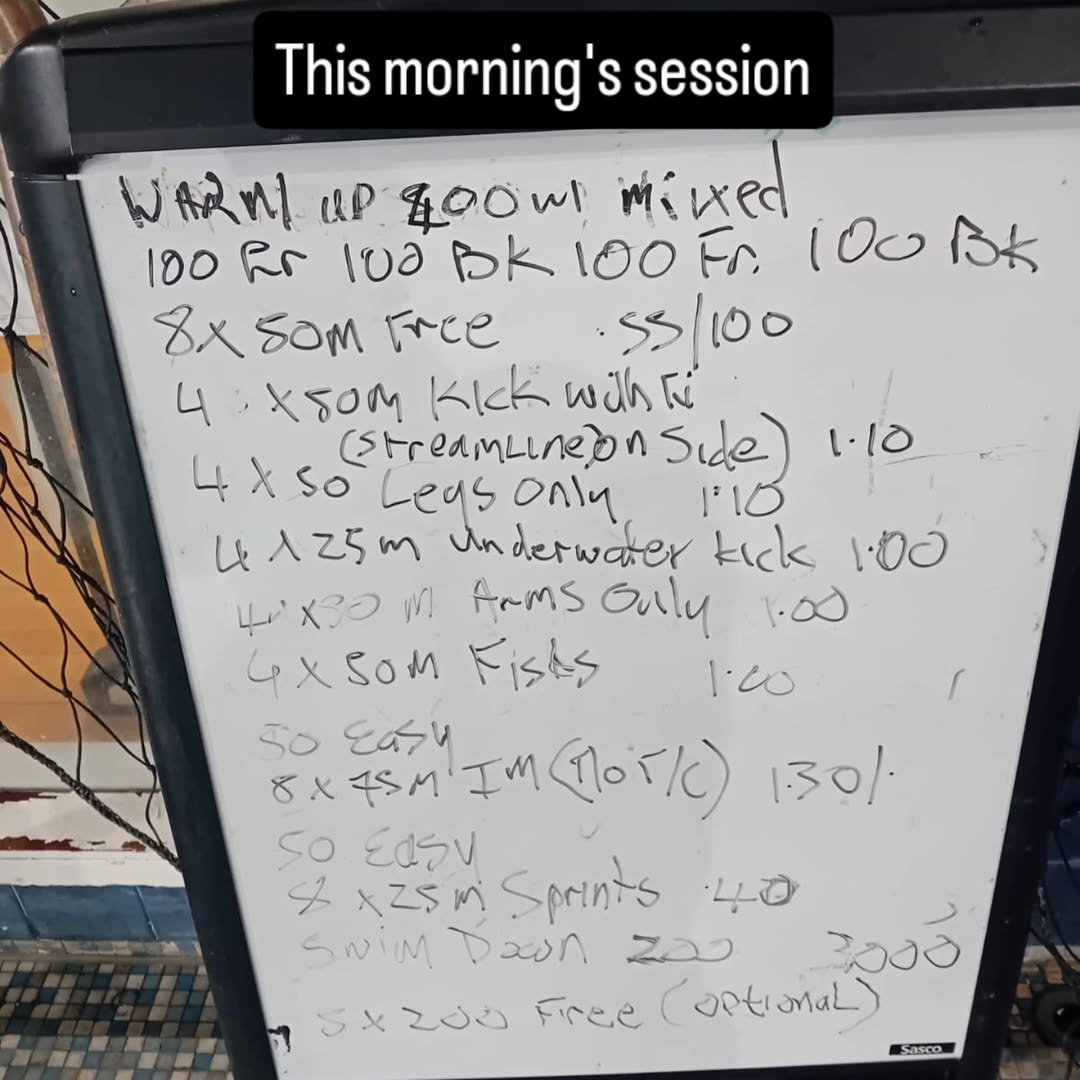 This morning's session
WARM UP 400m mixed
100 Fr 100 BK 100 Fr. 100 BK
8 x 50M Free .55/100
4 x 50M Kick with
(Streamline on Side) 1.10
4 x 50 Legs Only 1:10
4 x 25m Underwater kick 1.00
4 x 50 m Arms Only 1.00
4 x 50M Fists 1.00
50 Easy
8 x 75M IM (no F/C) 1.30/.
50 Easy
8 x 25m Sprints .40
Swim Down 200 3000
5 x 200 Free (optional)
Sasco